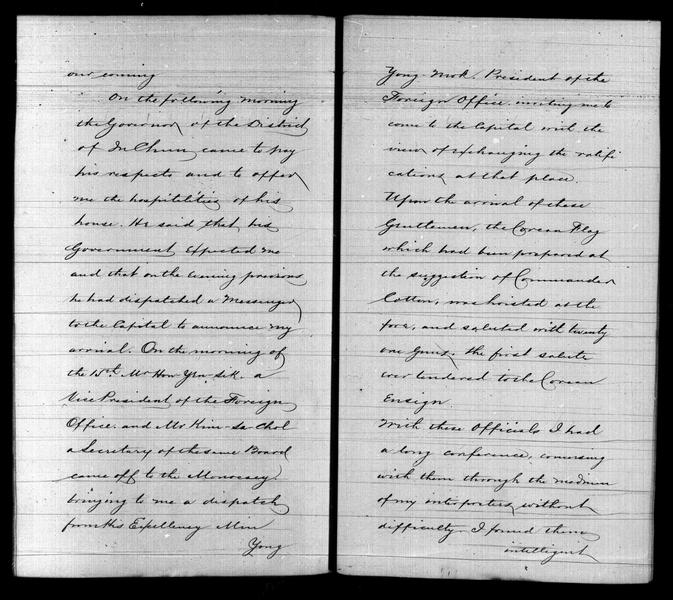 our coming
On the following morning
the Governor of the District
of In Chun came to pay
his respects and to offer
me the hospitilities of his
house. He said that his
Government expected me
and that on the evening previous
he had dispatched a Messenger
to the Capital to announce my
arrival. On the morning of
the 15th Mr Hon Yen Sik. a
Vice President of the Foreign
Office. and Mr Kim Sa Chol
a Secretary of the same Board
came off to the Monocacy
bringing to me a dispatch
from His Excellency Min
Yong
Yong-Mok. President of the
Foreign Office inviting me to
come to the Capital with the
view of exchanging the ratifi
cations at that place.
Upon the arrival of these
Gentlemen, the Corean Flag
which had been prepared at
the suggestion of Commander
Cotton, was hoisted at the
fore, and saluted with twenty
one Guns. the first salute
ever tendered to the Corean
Ensign.
With these Officials I had
a long conference, conversing
with them through the medium
of my interpreters without
difficulty. I found them
intelligent